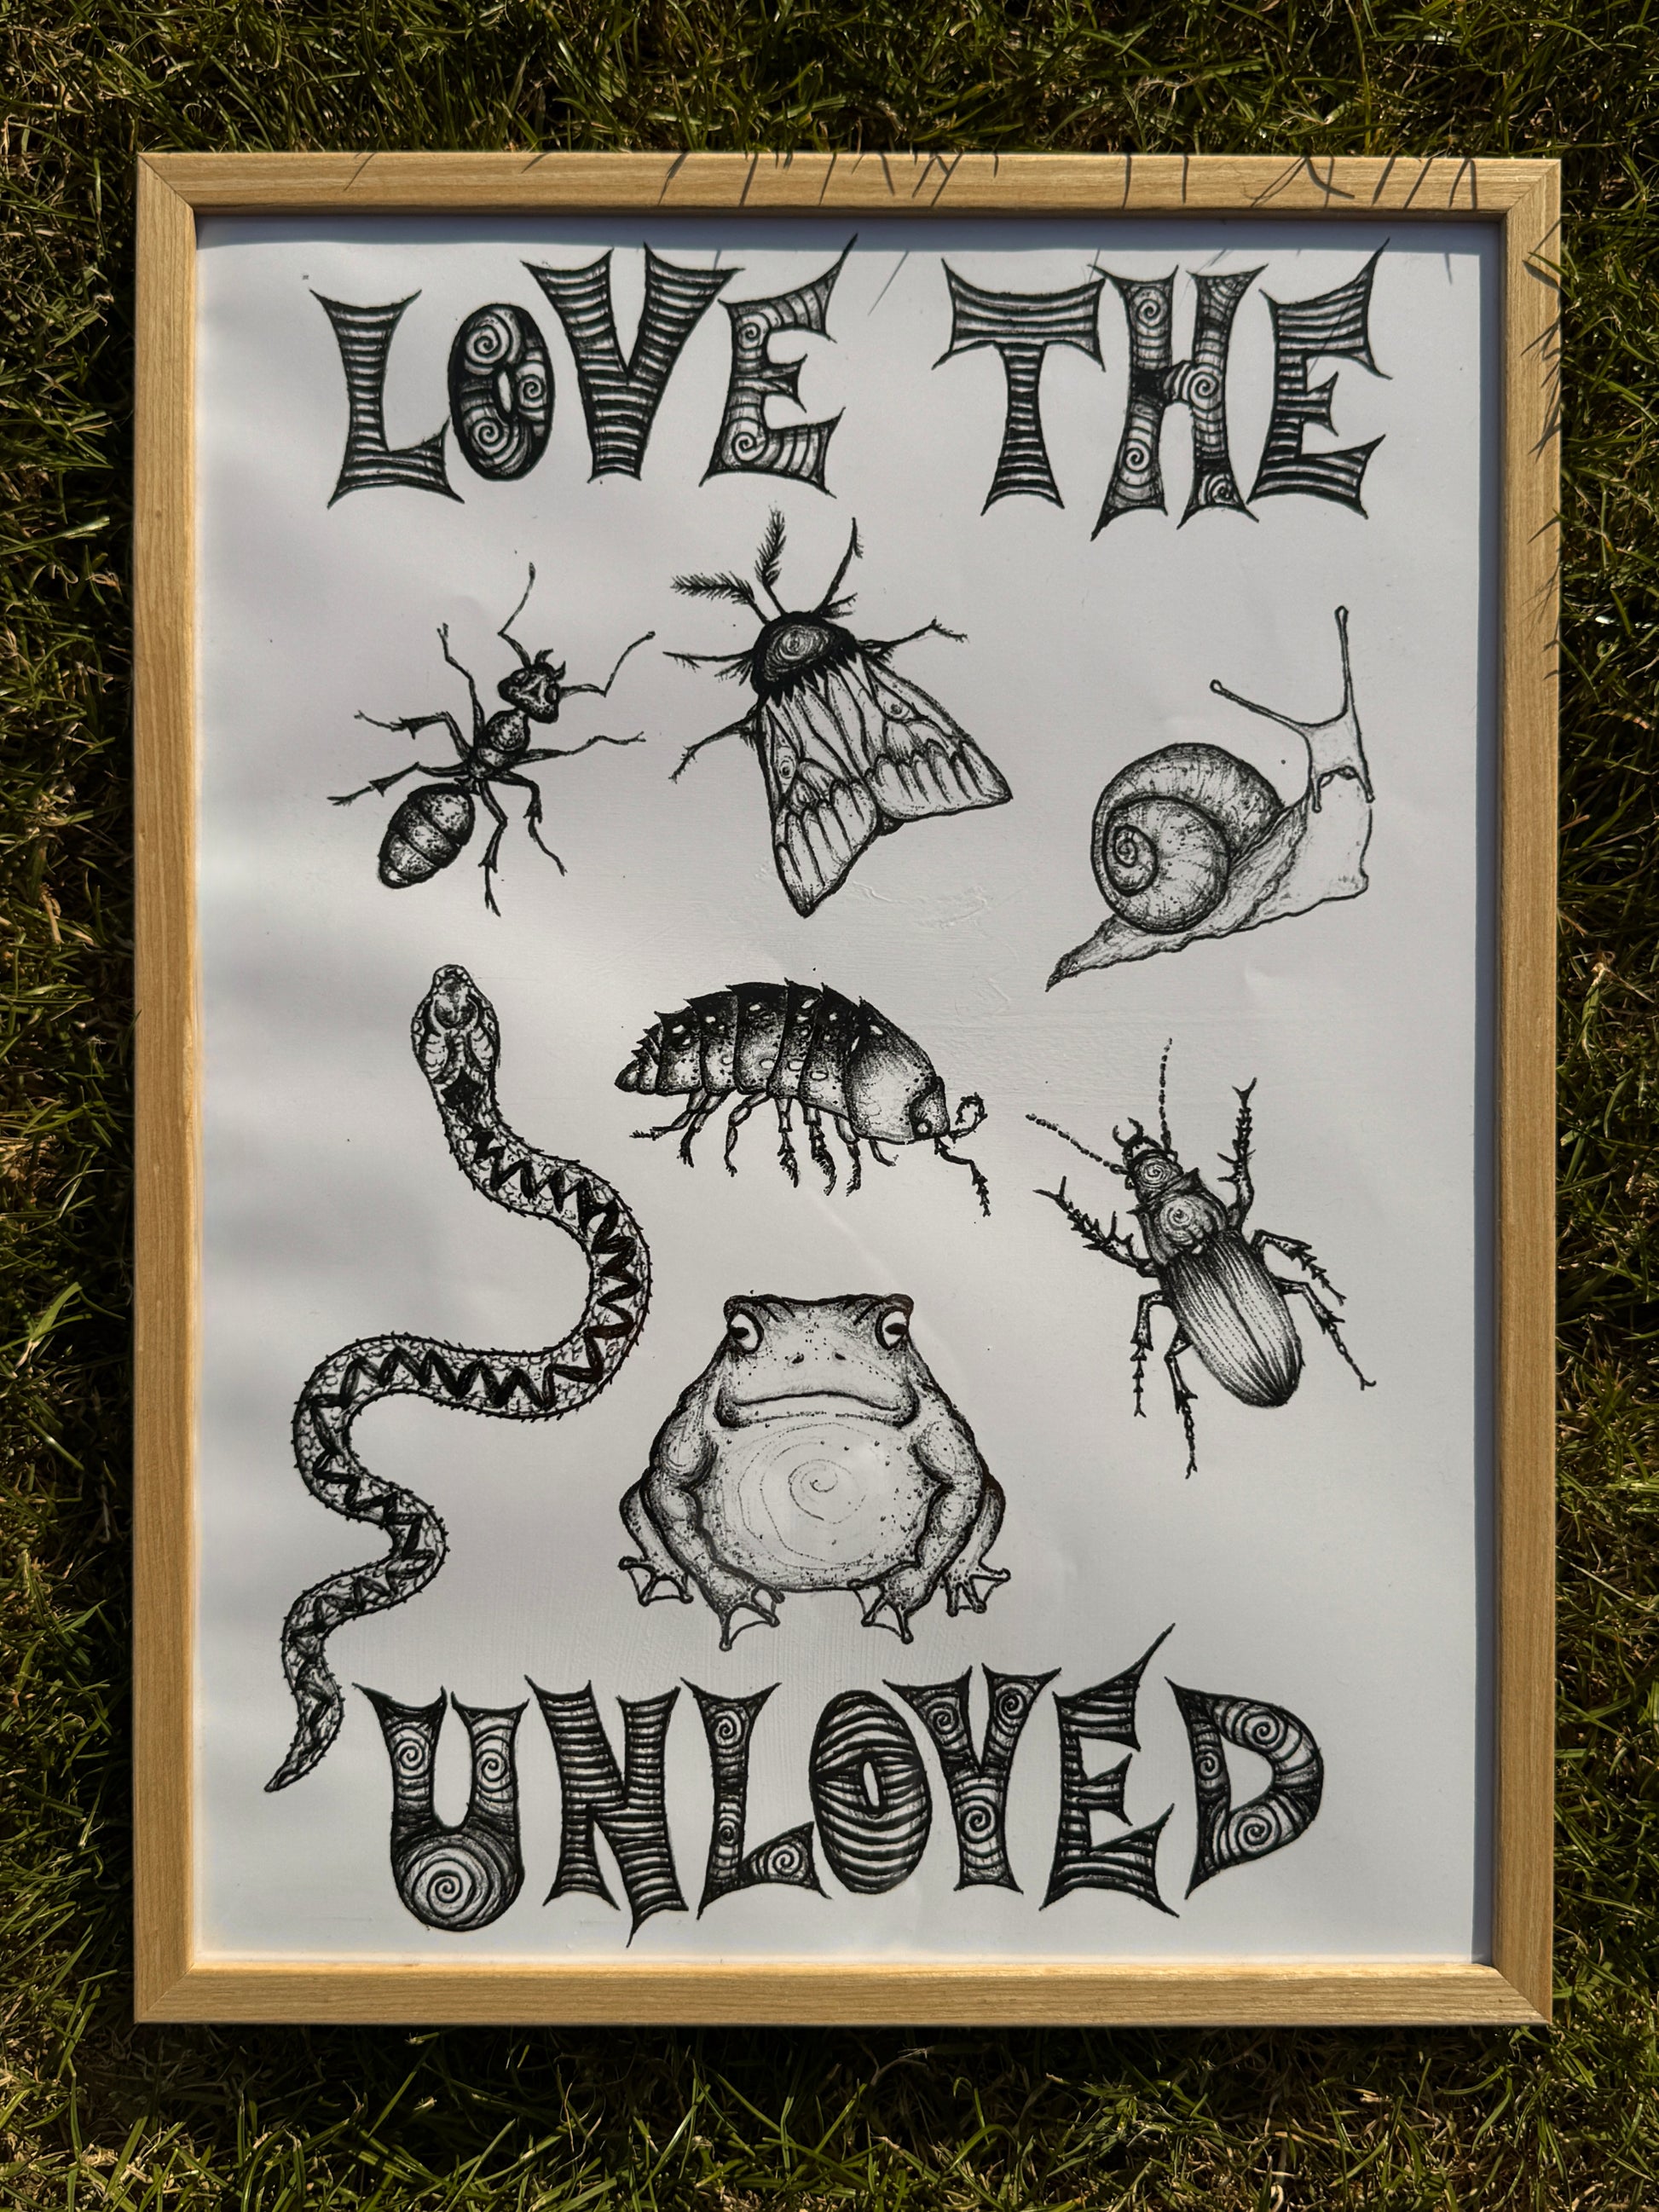 LOVE THE
UNLOVED